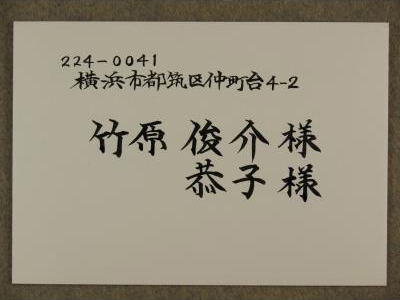 224-0041
横浜市都筑区仲町台4-2
竹原 俊介 様
恭子 様